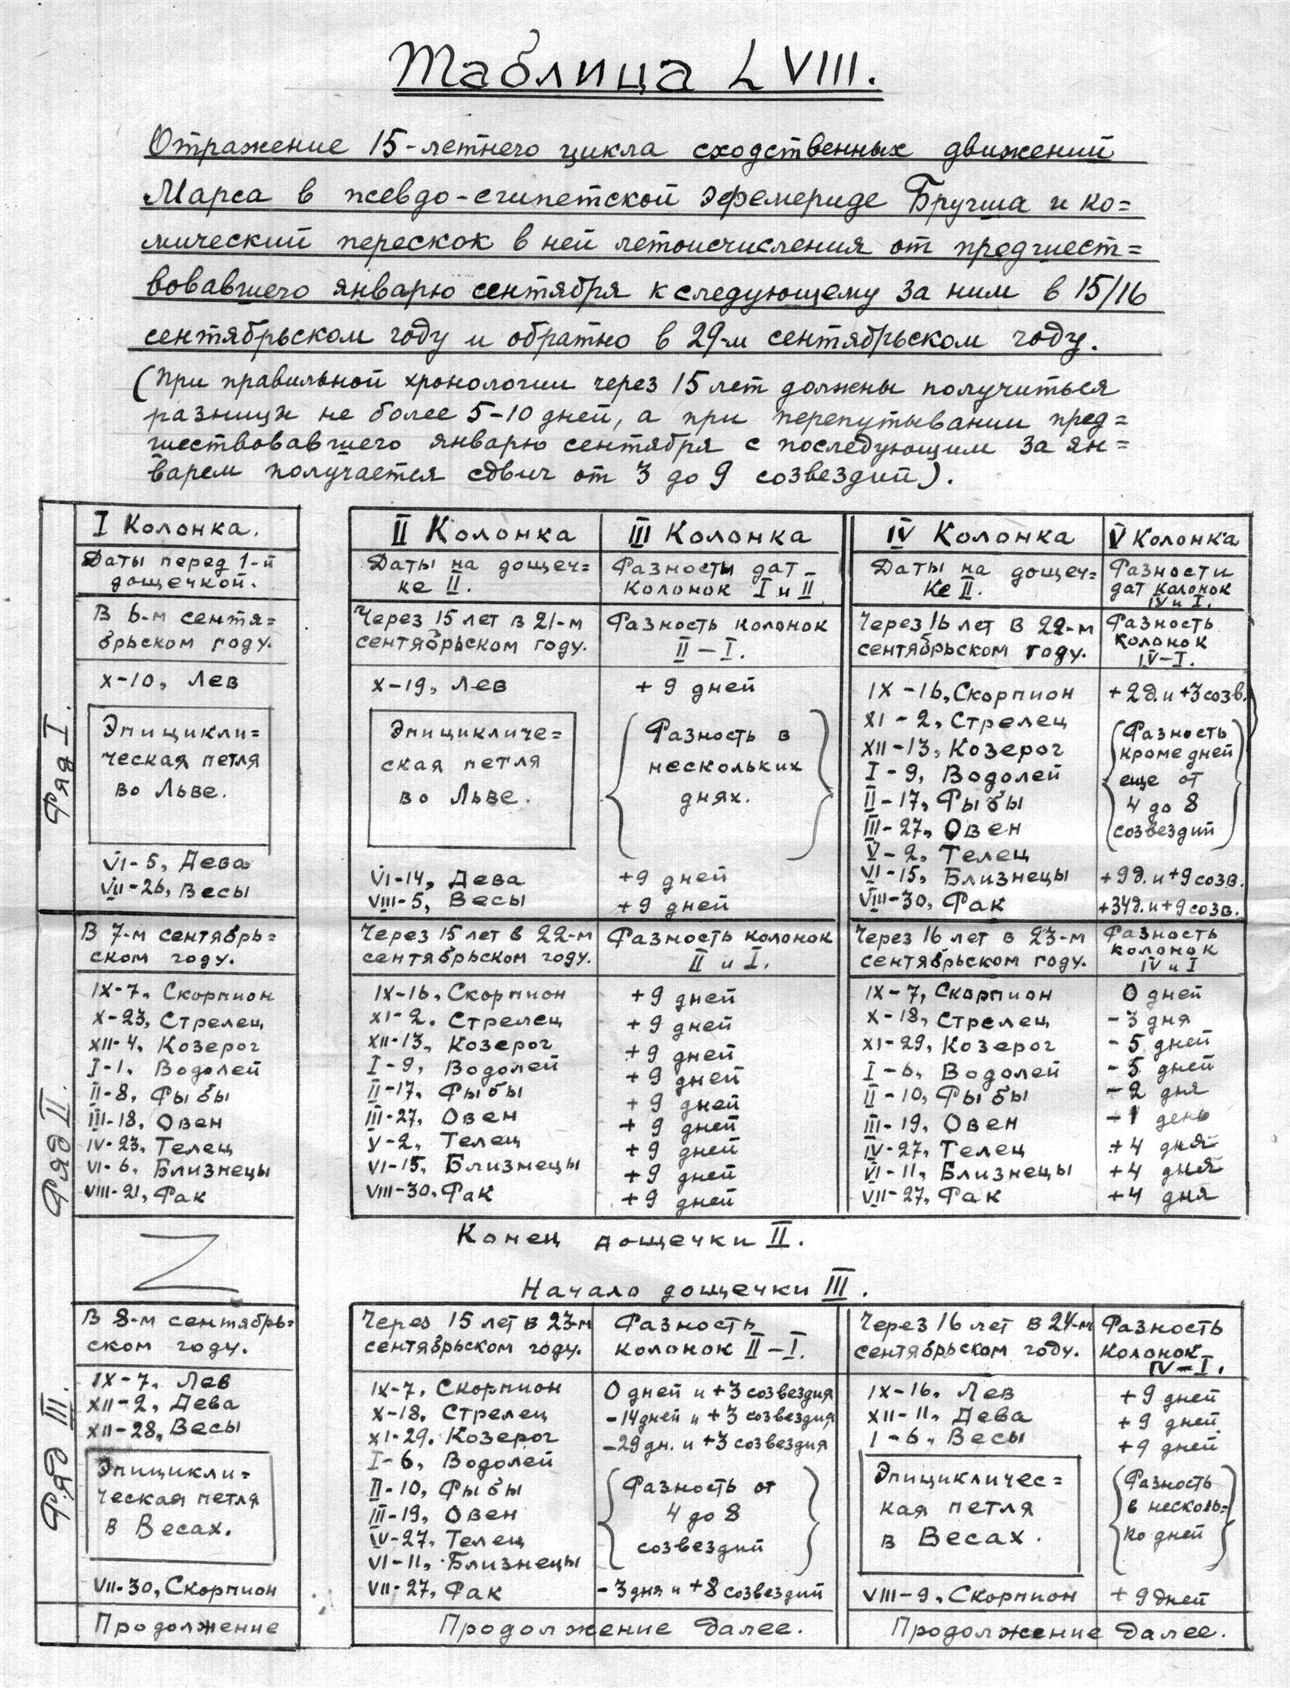 Таблица LVIII.
Отражение 15-летнего цикла сходственных движений
Марса в псевдо-египетской эфемериде Бругша и ко=
мический перескок в ней летоисчисления от предшест=
вовавшего январю сентября к следующему за ним в 15/16
сентябрьском году и обратно в 29-м сентябрьском году.
(При правильной хронологии через 15 лет должны получиться
разницы не более 5-10 дней, а при перепутывании пред=
шествовавшего январю сентября с последующим за ян=
варем получается сдвиг от 3 до 9 созвездий).
Ряд I.
I Колонка.
Даты перед 1-й
дощечкой.
В 6-м сентя=
брьском году.
X-10, Лев
Эпицикли=
ческая петля
во Льве.
VI-5, Дева
VII-26, Весы
II Колонка
Даты на дощеч=
ке II.
Через 15 лет в 21-м
сентябрьском году.
X-19, Лев
Эпицикличе=
ская петля
во Льве.
VI-14, Дева
VIII-5, Весы
III Колонка
Разность дат
Колонок I и II
Разность колонок
II - I.
+9 дней
Разность в
нескольких
днях.
+9 дней
+9 дней
IV Колонка
Даты на дощеч=
ке II.
Через 16 лет в 22-м
сентябрьском году.
IX-16, Скорпион
XI-2, Стрелец
XII-13, Козерог
I-9, Водолей
II-17, Рыбы
III-27, Овен
V-2, Телец
VI-15, Близнецы
VIII-30, Рак
V Колонка
Разности
дат колонок
IV и I.
Разность
колонок
IV-I.
+2д. и +3 созв.
(Разность
кроме дней
еще от
4 до 8
созвездий)
+9д. и +9 созв.
+34д. и +9 созв.
Ряд II.
В 7-м сентябрь=
ском году.
IX-7, Скорпион
X-23, Стрелец
XII-4, Козерог
I-1, Водолей
II-8, Рыбы
III-18, Овен
IV-23, Телец
VI-6, Близнецы
VIII-21, Рак
Через 15 лет в 22-м
сентябрьском году.
IX-16, Скорпион
XI-2. Стрелец
XII-13, Козерог
I-9, Водолей
II-17, Рыбы
III-27, Овен
V-2, Телец
VI-15, Близнецы
VIII-30, Рак
Разность колонок
II и I.
+9 дней
+9 дней
+9 дней
+9 дней
+9 дней
+9 дней
+9 дней
+9 дней
+9 дней
Через 16 лет в 23-м
сентябрьском году.
IX-7, Скорпион
X-18, Стрелец
XI-29, Козерог
I-6, Водолей
II-10, Рыбы
III-19, Овен
IV-27, Телец
VI-11, Близнецы
VII-27, Рак
Разность
колонок
IV и I
0 дней
-3 дня
-5 дней
-5 дней
-2 дня
-1 день
+4 дня
+4 дня
+4 дня
Конец дощечки II.
Начало дощечки III.
Ряд III.
В 8-м сентябрь=
ском году.
IX-7, Лев
XII-2, Дева
XII-28, Весы
Эпицикли=
ческая петля
в Весах.
VII-30, Скорпион
Продолжение
Через 15 лет в 23-м
сентябрьском году.
IX-7, Скорпион
X-18. Стрелец
XI-29. Козерог
I-6, Водолей
II-10, Рыбы
III-19, Овен
IV-27, Телец
VI-11, Близнецы
VII-27, Рак
Разность
колонок II-I.
0 дней и +3 созвездия
-14 дней и +3 созвездия
-29 дн. и +3 созвездия
Разность от
4 до 8
созвездий
-3 дня и +8 созвездий
Продолжение далее.
Через 16 лет в 24-м
сентябрьском году.
IX-16, Лев
XII-11, Дева
I-6, Весы
Эпицикличес=
кая петля
в Весах.
VIII-9, Скорпион
Разность
Колонок
IV-I.
+9 дней
+9 дней
+9 дней
Разность
в несколь=
ко дней
+9 дней
Продолжение далее.